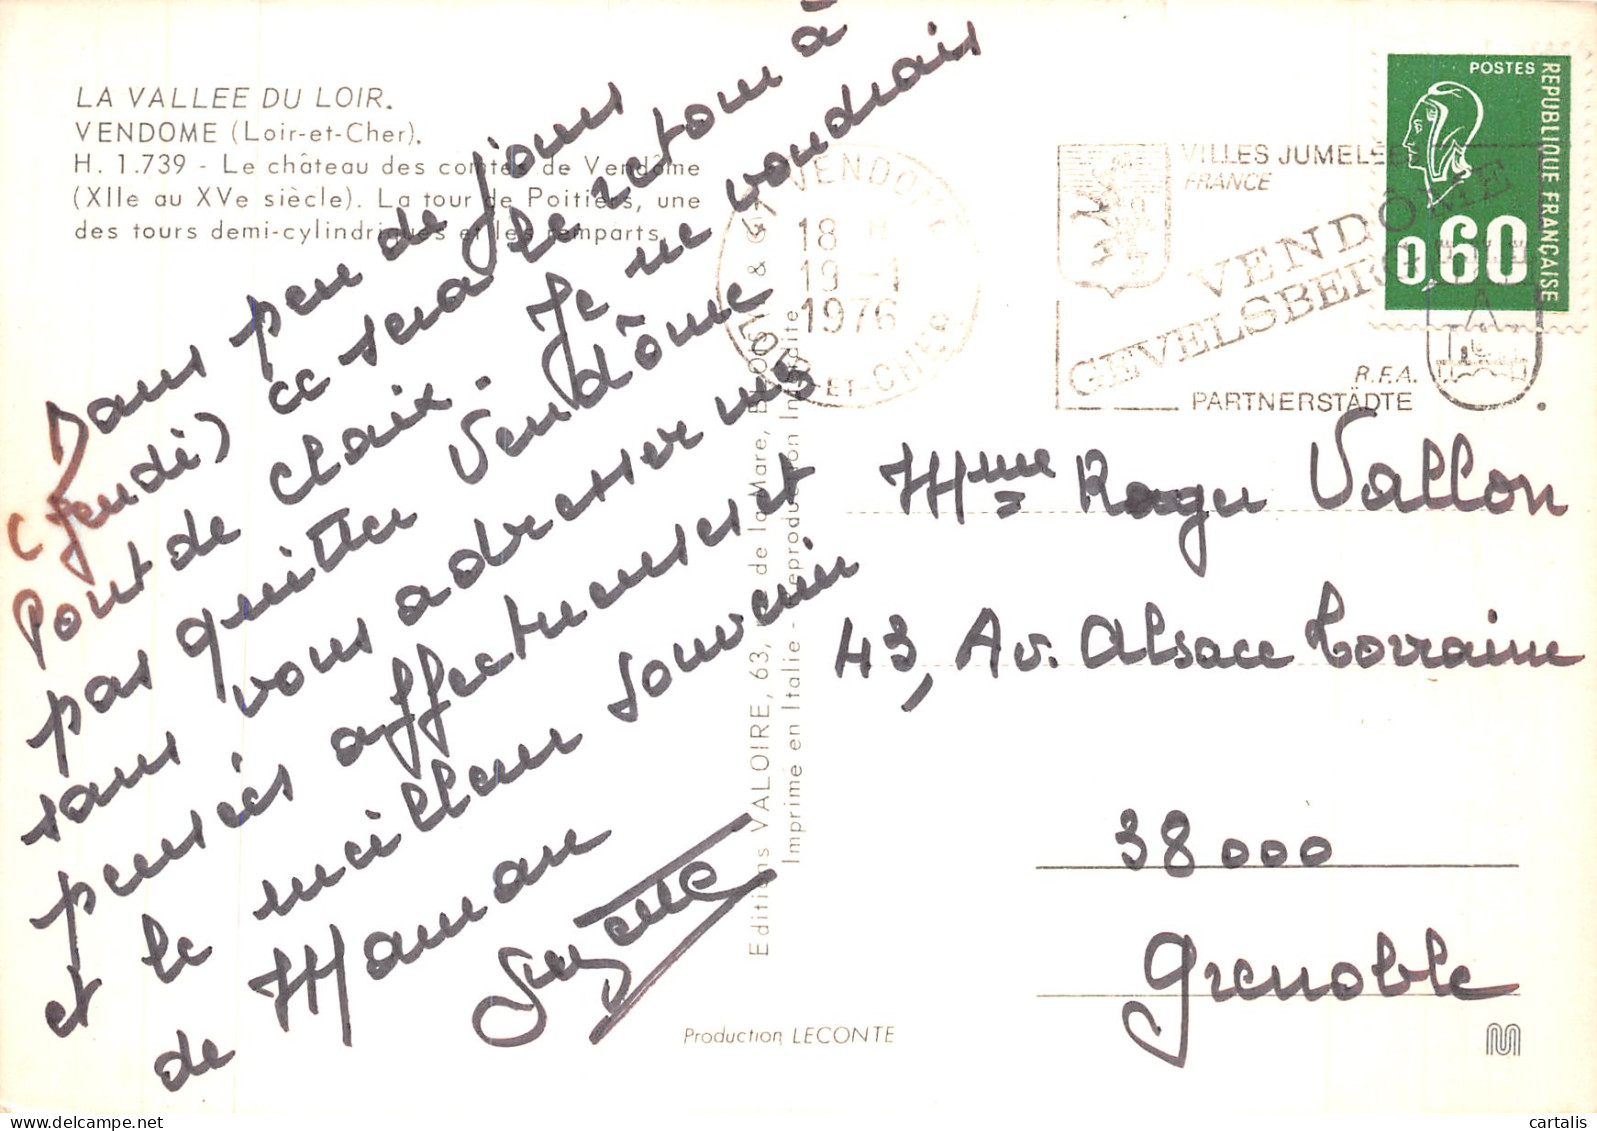 LA VALLEE DU LOIR.
VENDOME (Loir-et-Cher).
H. 1.739 - Le château des comtes de Vendôme
(XIIe au XVe siècle). La tour de Poitiers, une
des tours demi-cylindriques et les remparts.
Dans peu de jours
(jeudi) ce sera le retour à
Pont de Claix. Je ne voudrais
pas quitter Vendôme
sans vous adresser mes
pensées affectueuses et
et le meilleur souvenir
de Maman
Suzette
Editions VALOIRE, 63, de la Mare, Blois
Imprimé en Italie - Reproduction Interdite
Production LECONTE
41 VENDOME
18 H
19 - 1
1976
LOIR-ET-CHER
VILLES JUMELÉES
FRANCE
VENDÔME
GEVELSBERG
R.F.A.
PARTNERSTÄDTE
POSTES
REPUBLIQUE FRANÇAISE
0,60
Mme Roger Vallon
43, Av. Alsace Lorraine
38000
Grenoble
cartalis
delcampe.net